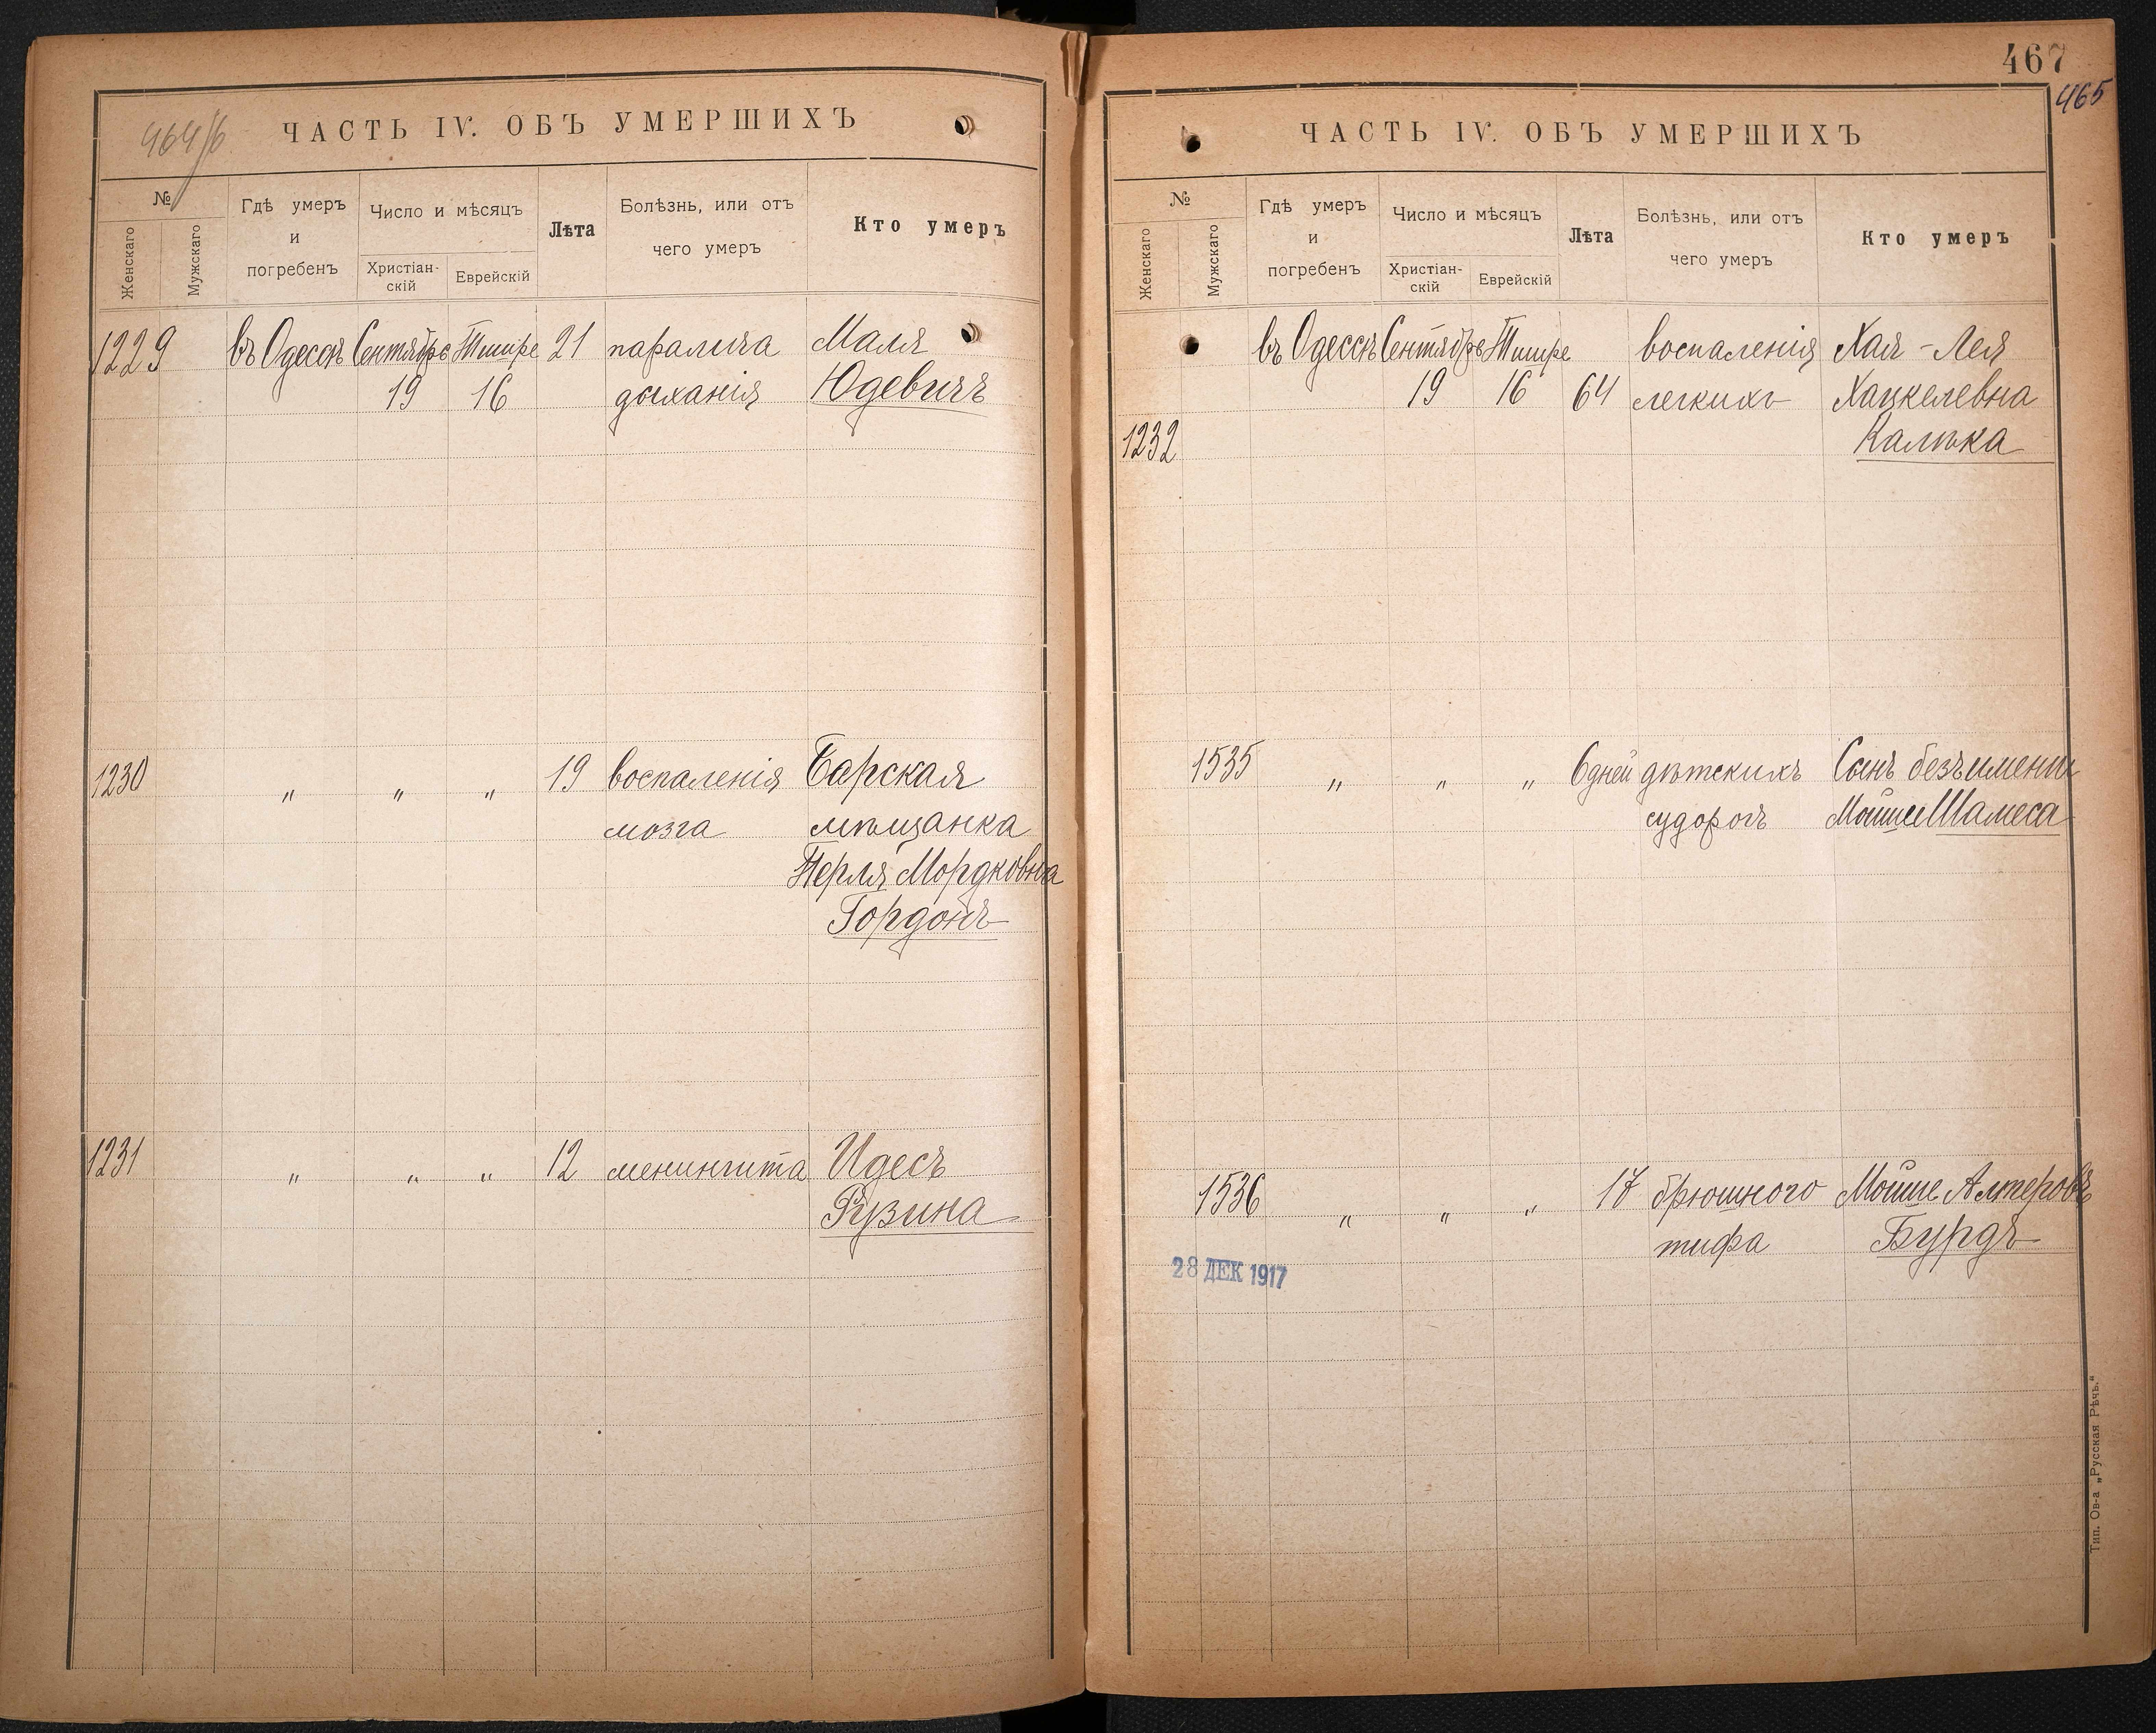 464/б
ЧАСТЬ IV. ОБЪ УМЕРШИХЪ
№
Женскаго
Мужскаго
Гдѣ умеръ
и
погребенъ
Число и мѣсяцъ
Христіан-
скій
Еврейскій
Лѣта
Болѣзнь, или отъ
чего умеръ
Кто умеръ
1229 въ Одессѣ Сентябрь Тишре 21 паралича Маля
19 16 дыханія Юдевичъ
1230 " " " 19 воспаленія Барская
мозга мѣщанка
Перля Мордковна
Гордонъ
1231 " " " 12 менингита Идесъ
Рузина
467
465
ЧАСТЬ IV. ОБЪ УМЕРШИХЪ
№
Женскаго
Мужскаго
Гдѣ умеръ
и
погребенъ
Число и мѣсяцъ
Христіан-
скій
Еврейскій
Лѣта
Болѣзнь, или отъ
чего умеръ
Кто умеръ
въ Одессѣ Сентябрь Тишре воспаленія Хая-Лея
19 16 64 легкихъ Хацкелевна
1232 Калѣка
1535 " " " 6 дней дѣтскихъ Сынъ безъ имени
судорогъ Мойше Шамеса
1536 " " " 17 брюшного Мойше Алтеровъ
тифа Бурдъ
28 ДЕК 1917
Тип. Ов-а „Русская Рѣчь."